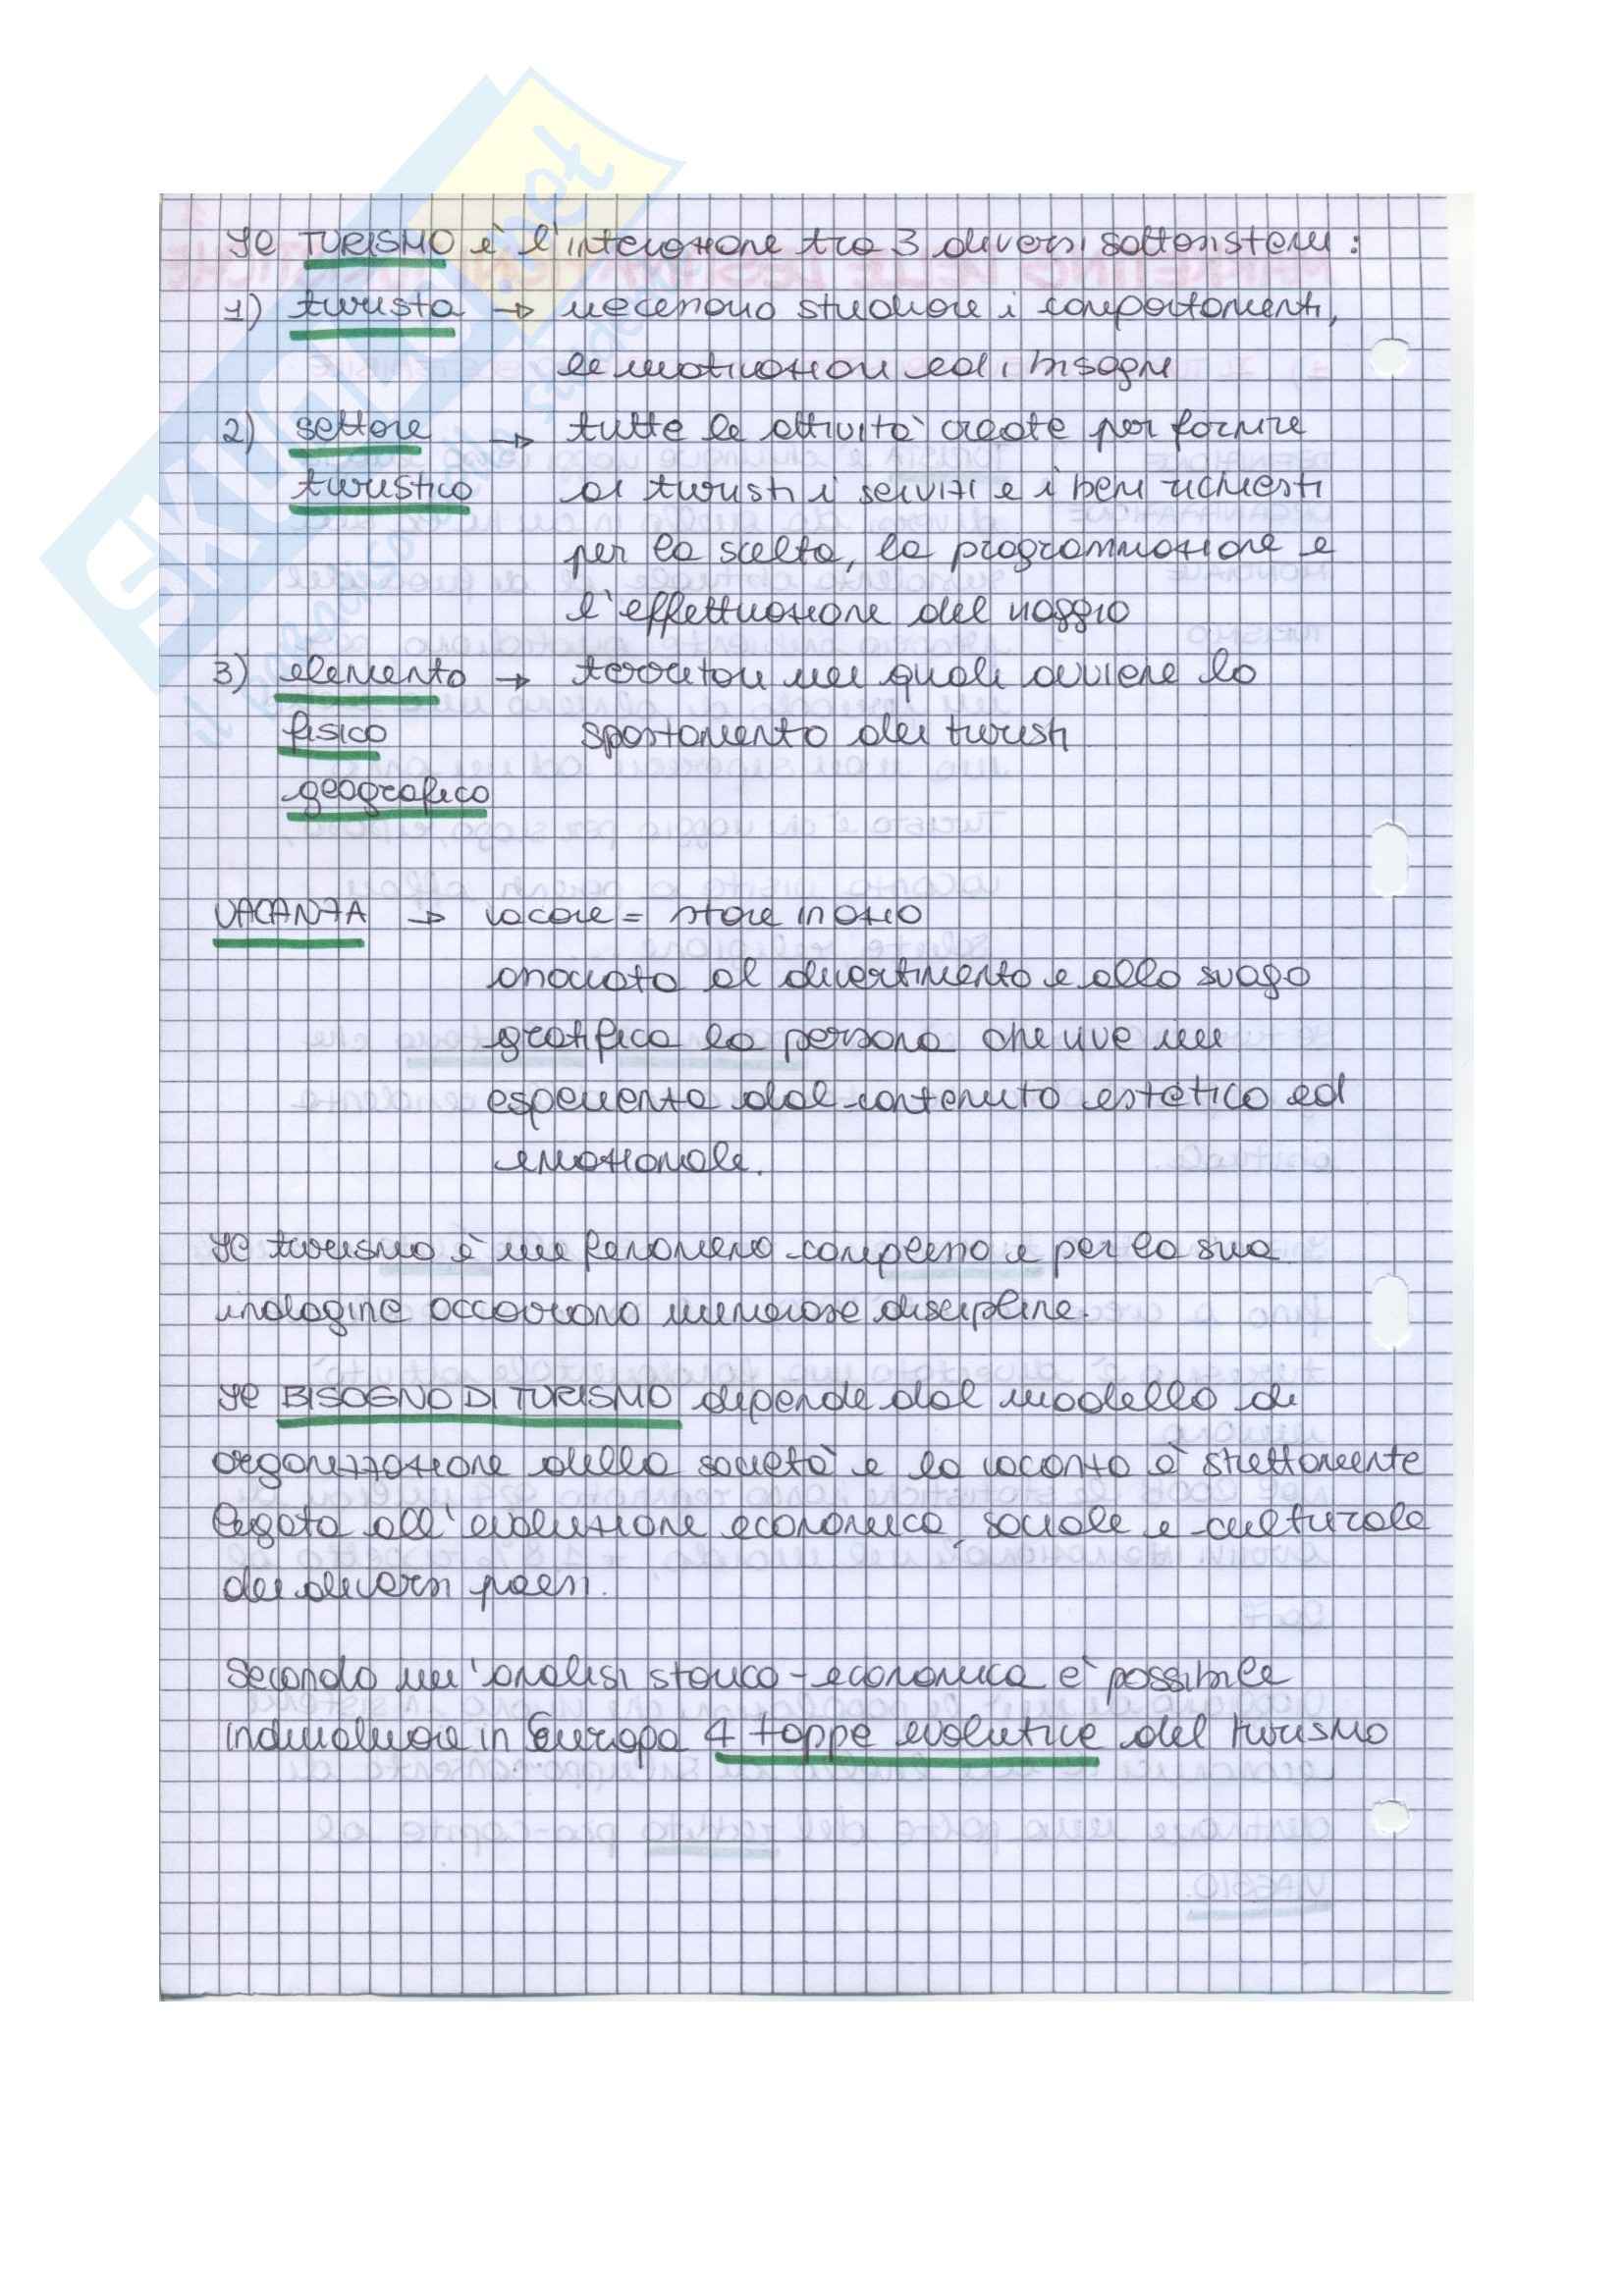 Il TURISMO è l'interazione tra 3 diversi sottosistemi :
1) turista → necessario studiare i comportamenti,
le motivazioni ed i bisogni
2) settore → tutte le attività create per fornire
turistico ai turisti i servizi e i beni richiesti
per la scelta, la programmazione e
l'effettuazione del viaggio
3) elemento → territori nei quali avviene lo
fisico spostamento dei turisti
geografico
VACANZA → vacare = stare in ozio
associata al divertimento e allo svago
gratifica la persona che vive un
esperienza dal contenuto estetico ed
emozionale.
Il turismo è un fenomeno complesso e per la sua
indagine occorrono numerose discipline.
Il BISOGNO DI TURISMO dipende dal modello di
organizzazione della società e la vacanza è strettamente
legata all'evoluzione economica, sociale e culturale
dei diversi paesi.
Secondo un'analisi storico-economica è possibile
individuare in Europa 4 tappe evolutive del turismo
SKUOLA.net
il paradiso dello studente